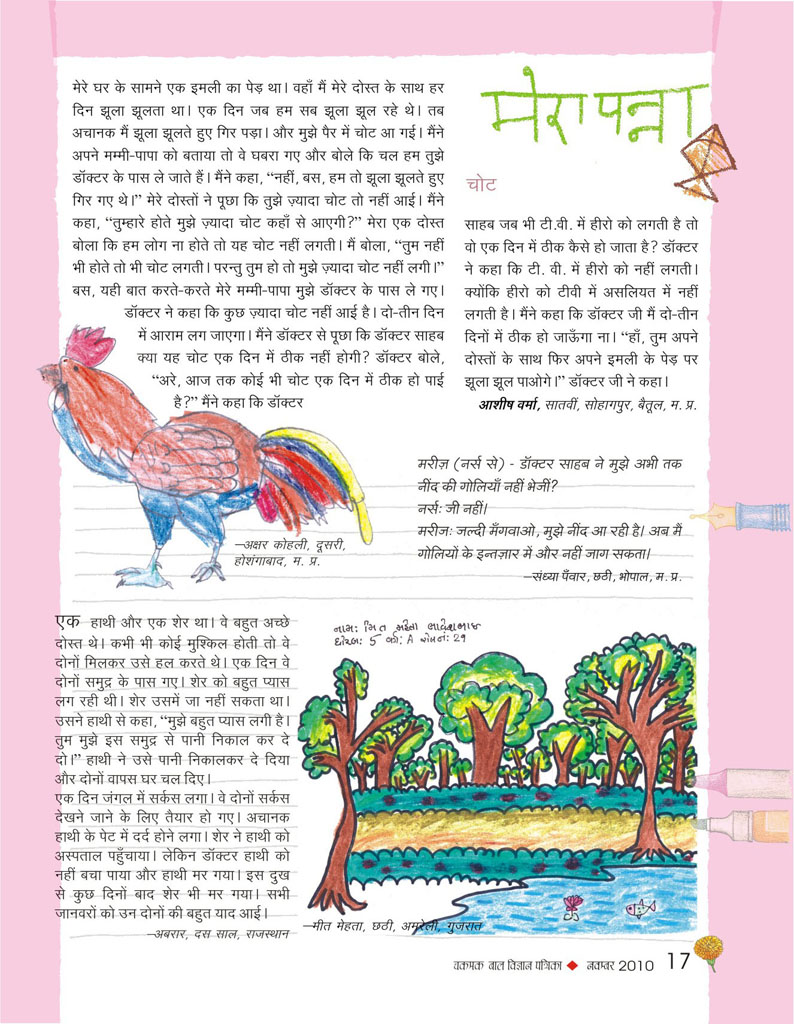 मेरा पन्ना
चोट
मेरे घर के सामने एक इमली का पेड़ था। वहाँ मैं मेरे दोस्त के साथ हर
दिन झूला झूलता था। एक दिन जब हम सब झूला झूल रहे थे। तब
अचानक मैं झूला झूलते हुए गिर पड़ा। और मुझे पैर में चोट आ गई। मैंने
अपने मम्मी-पापा को बताया तो वे घबरा गए और बोले कि चल हम तुझे
डॉक्टर के पास ले जाते हैं। मैंने कहा, “नहीं, बस, हम तो झूला झूलते हुए
गिर गए थे।” मेरे दोस्तों ने पूछा कि तुझे ज़्यादा चोट तो नहीं आई। मैंने
कहा, “तुम्हारे होते मुझे ज़्यादा चोट कहाँ से आएगी?” मेरा एक दोस्त
बोला कि हम लोग ना होते तो यह चोट नहीं लगती। मैं बोला, “तुम नहीं
भी होते तो भी चोट लगती। परन्तु तुम हो तो मुझे ज़्यादा चोट नहीं लगी।”
बस, यही बात करते-करते मेरे मम्मी-पापा मुझे डॉक्टर के पास ले गए।
डॉक्टर ने कहा कि कुछ ज़्यादा चोट नहीं आई है। दो-तीन दिन
में आराम लग जाएगा। मैंने डॉक्टर से पूछा कि डॉक्टर साहब
क्या यह चोट एक दिन में ठीक नहीं होगी? डॉक्टर बोले,
“अरे, आज तक कोई भी चोट एक दिन में ठीक हो पाई
है?” मैंने कहा कि डॉक्टर
साहब जब भी टी.वी. में हीरो को लगती है तो
वो एक दिन में ठीक कैसे हो जाता है? डॉक्टर
ने कहा कि टी. वी. में हीरो को नहीं लगती।
क्योंकि हीरो को टीवी में असलियत में नहीं
लगती है। मैंने कहा कि डॉक्टर जी मैं दो-तीन
दिनों में ठीक हो जाऊँगा ना। “हाँ, तुम अपने
दोस्तों के साथ फिर अपने इमली के पेड़ पर
झूला झूल पाओगे।” डॉक्टर जी ने कहा।
आशीष वर्मा, सातवीं, सोहागपुर, बैतूल, म. प्र.
—अक्षर कोहली, दूसरी,
होशंगाबाद, म. प्र.
मरीज़ (नर्स से) - डॉक्टर साहब ने मुझे अभी तक
नींद की गोलियाँ नहीं भेजीं?
नर्सः जी नहीं।
मरीजः जल्दी मँगवाओ, मुझे नींद आ रही है। अब मैं
गोलियों के इन्तज़ार में और नहीं जाग सकता।
—संध्या पँवार, छठी, भोपाल, म. प्र.
एक हाथी और एक शेर था। वे बहुत अच्छे
दोस्त थे। कभी भी कोई मुश्किल होती तो वे
दोनों मिलकर उसे हल करते थे। एक दिन वे
दोनों समुद्र के पास गए। शेर को बहुत प्यास
लग रही थी। शेर उसमें जा नहीं सकता था।
उसने हाथी से कहा, “मुझे बहुत प्यास लगी है।
तुम मुझे इस समुद्र से पानी निकाल कर दे
दो।” हाथी ने उसे पानी निकालकर दे दिया
और दोनों वापस घर चल दिए।
एक दिन जंगल में सर्कस लगा। वे दोनों सर्कस
देखने जाने के लिए तैयार हो गए। अचानक
हाथी के पेट में दर्द होने लगा। शेर ने हाथी को
अस्पताल पहुँचाया। लेकिन डॉक्टर हाथी को
नहीं बचा पाया और हाथी मर गया। इस दुख
से कुछ दिनों बाद शेर भी मर गया। सभी
जानवरों को उन दोनों की बहुत याद आई।
—अबरार, दस साल, राजस्थान
નામ: મિત મહેતા ભાવેશભાઇ
ધોરણ: 5 વર્ગ: A રોલનં: 29
—मीत मेहता, छठी, अमरेली, गुजरात
चकमक बाल विज्ञान पत्रिका ◆ नवम्बर 2010 17